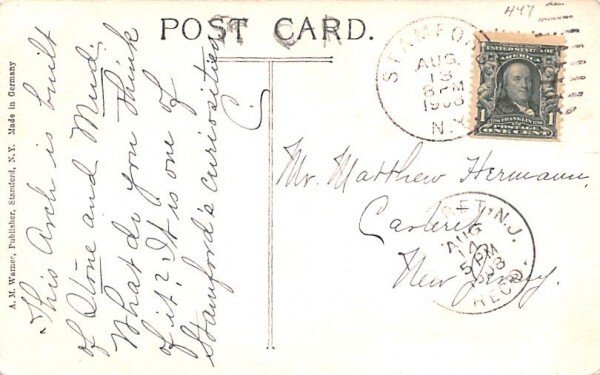 447
POST CARD.
STAMFORD
AUG.
13
8 PM
1908
N.Y.
UNITED STATES OF
AMERICA
1
FRANKLIN
POSTAGE
ONE CENT
1
"This Arch is built
of Stone and Mud.
What do you think
of it? It is one of
Stamford's curiosities
C.
Mr. Matthew Hermann,
Carteret
New Jersey.
RET, N.J.
AUG
14
5 PM
1908
REC'D.
A. M. Warner, Publisher, Stamford, N. Y. Made in Germany